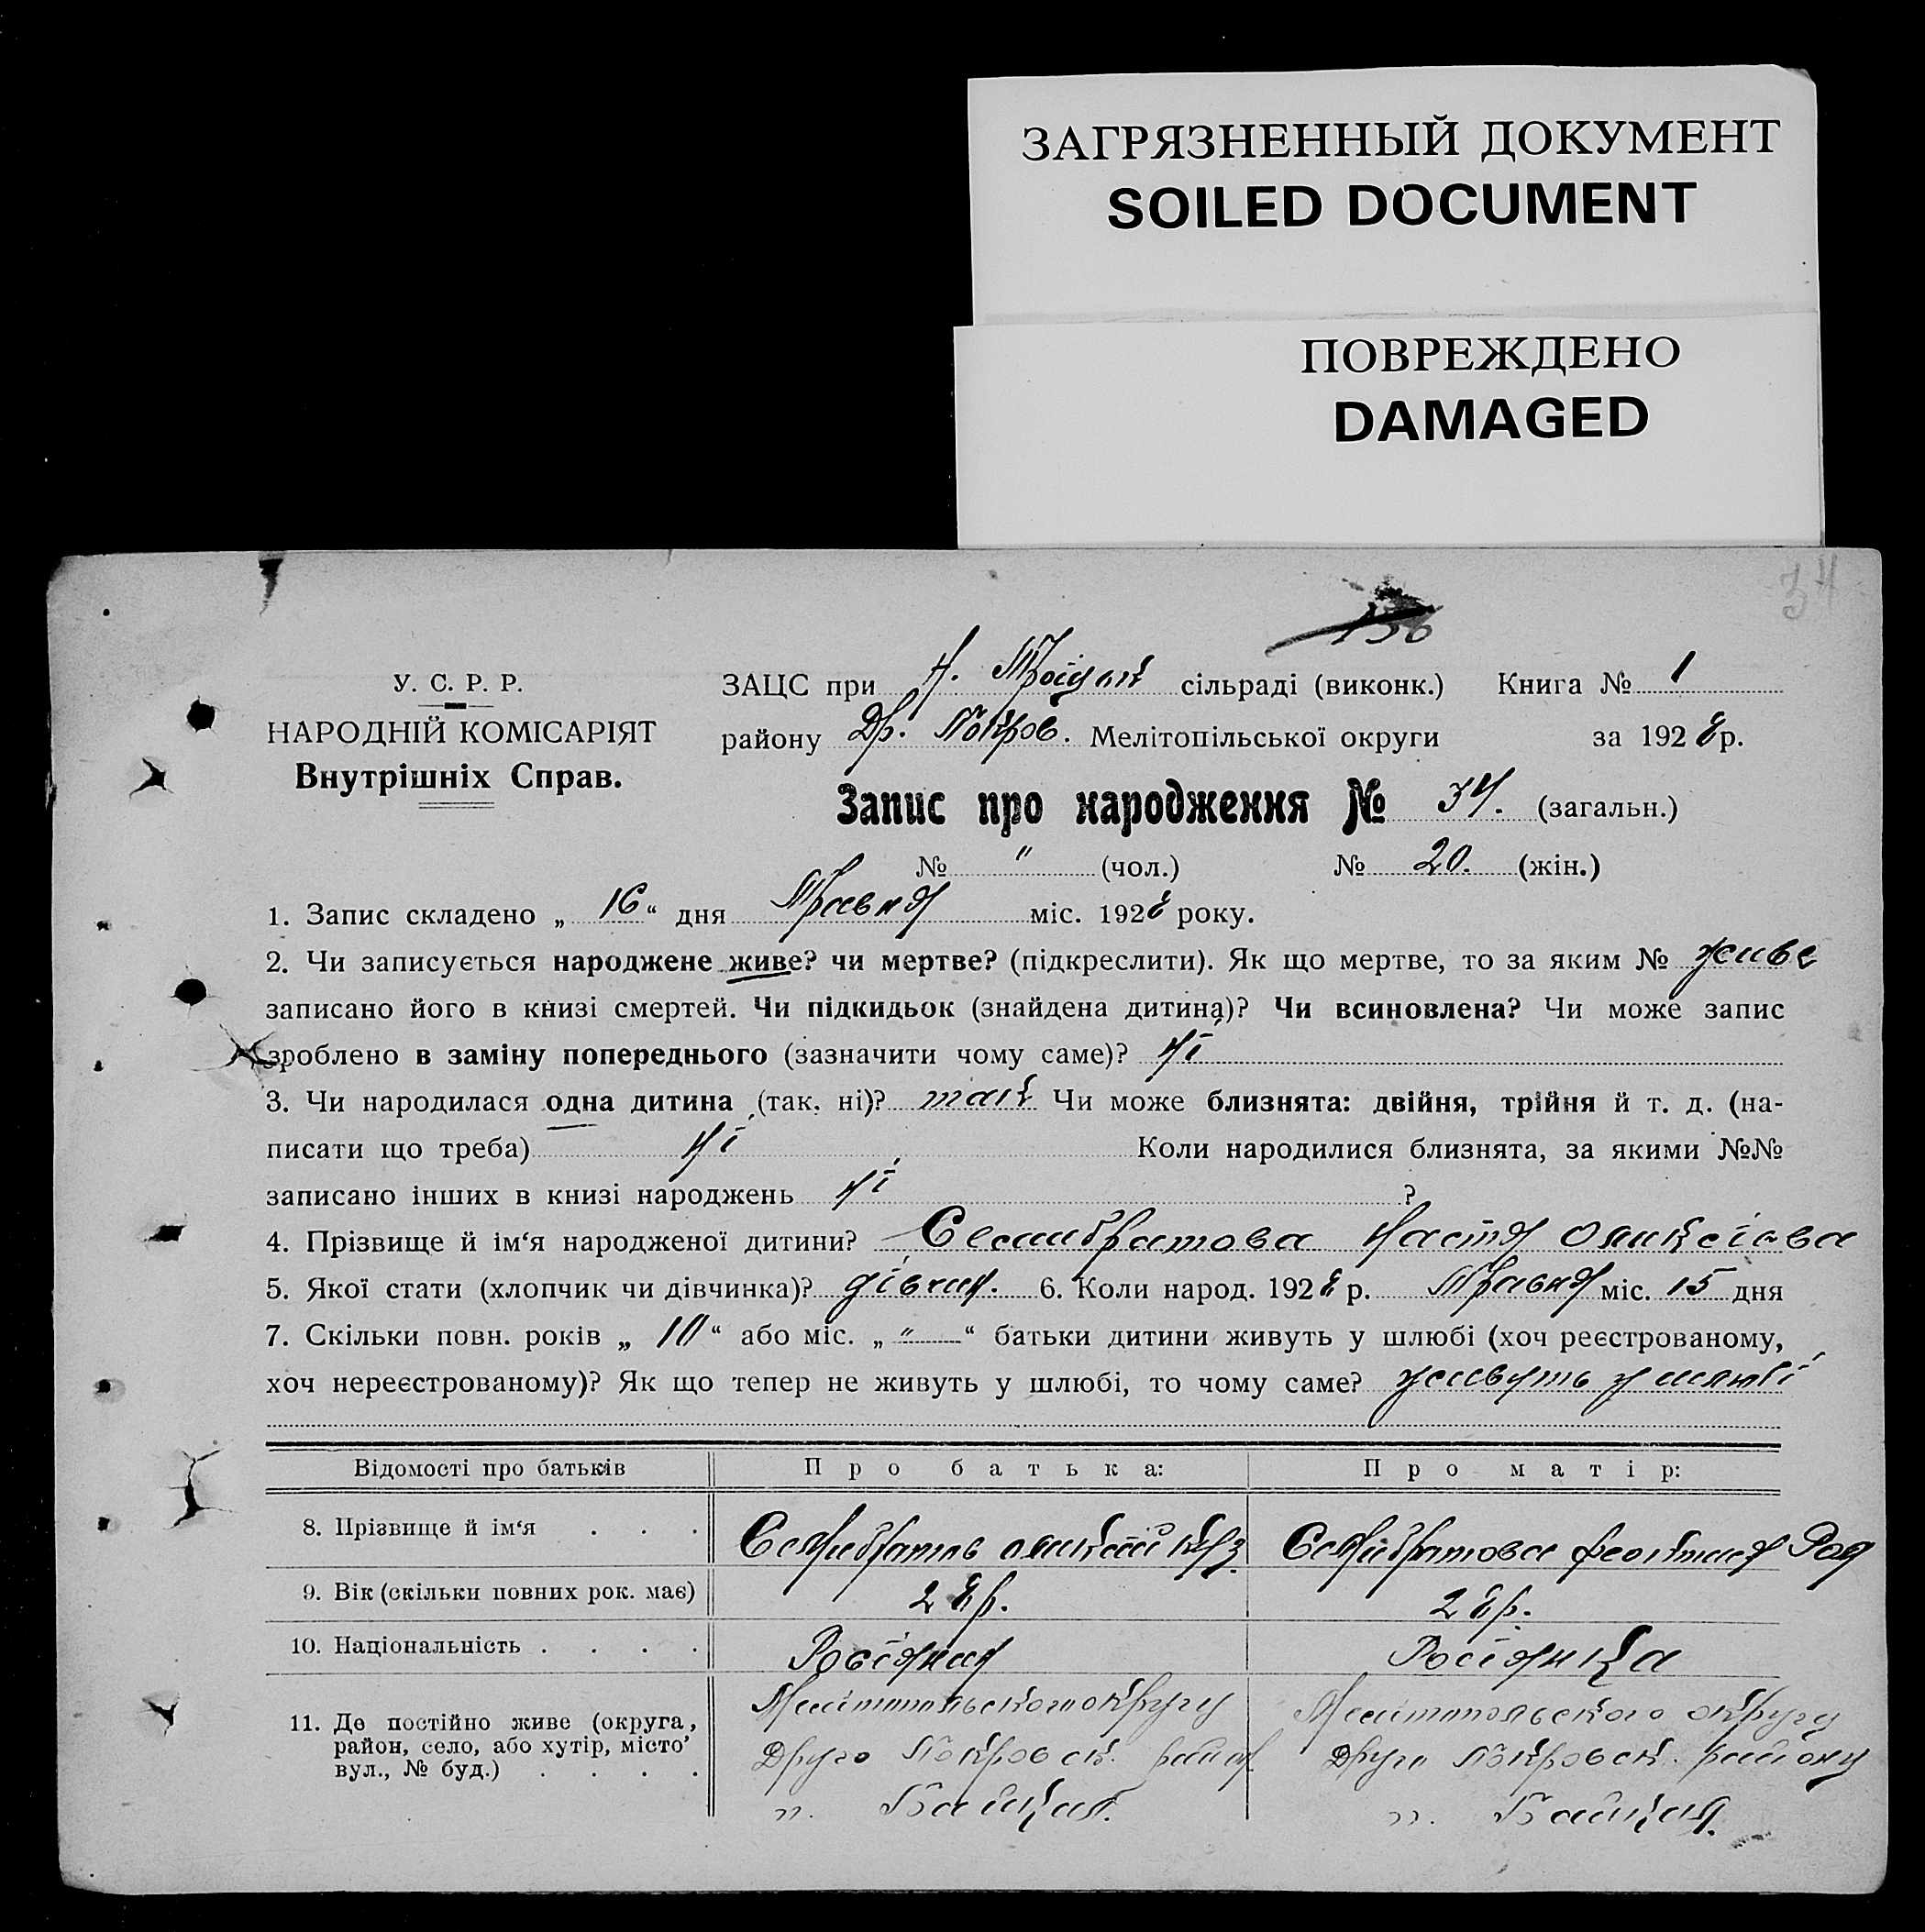 ЗАГРЯЗНЕННЫЙ ДОКУМЕНТ
SOILED DOCUMENT
ПОВРЕЖДЕНО
DAMAGED
34
У. С. Р. Р.
НАРОДНІЙ КОМІСАРІЯТ
Внутрішніх Справ.
ЗАЦС при Н. сільраді (виконк.) Книга № 1
району Др. Покров. Мелітопільської округи за 1928 р.
Запис про народження № 34. (загальн.)
№ " (чол.) № 20. (жін.)
1. Запис складено „ 16 “ дня Травня міс. 1928 року.
2. Чи записується народжене живе? чи мертве? (підкреслити). Як що мертве, то за яким № живе
записано його в книзі смертей. Чи підкидьок (знайдена дитина)? Чи всиновлена? Чи може запис
зроблено в заміну попереднього (зазначити чому саме)? Ні
3. Чи народилася одна дитина (так, ні)? так Чи може близнята: двійня, трійня й т. д. (на-
писати що треба) Ні Коли народилися близнята, за якими №№
записано інших в книзі народжень Ні ?
4. Прізвище й ім‘я народженої дитини? Настя
5. Якої стати (хлопчик чи дівчинка)? дівчин. 6. Коли народ. 1928 р. Травня міс. 15 дня
7. Скільки повн. років „ 10 “ або міс. „ " “ батьки дитини живуть у шлюбі (хоч реєстрованому,
хоч нереєстрованому)? Як що тепер не живуть у шлюбі, то чому саме? живуть у шлюбі
Відомості про батьків Про батька: Про матір:
8. Прізвище й ім‘я . . .
9. Вік (скільки повних рок. має) 28 р. 28 р.
10. Національність . . . . Росіянин Росіянка
11. Де постійно живе (округа, район, село, або хутір, місто, вул., № буд.) . . . .
Друго Покровск. Друго Покровск. району